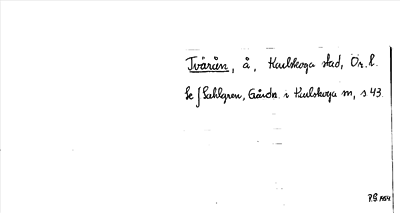 Tvärån, å, Karlskoga stad, Ör. l.
Se Sahlgren, Gårdn. i Karlskoga m, s 43.
R.S 1954